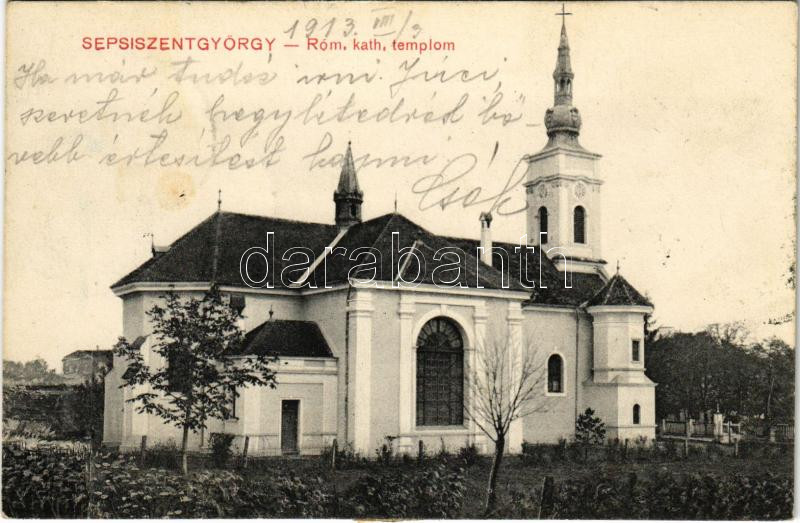 1913. VIII/3
SEPSISZENTGYÖRGY — Róm. kath. templom
Ha már tudsz irni Juci,
szeretnék hegylétedről bő-
vebb értesítést kapni
Csók
darabanth